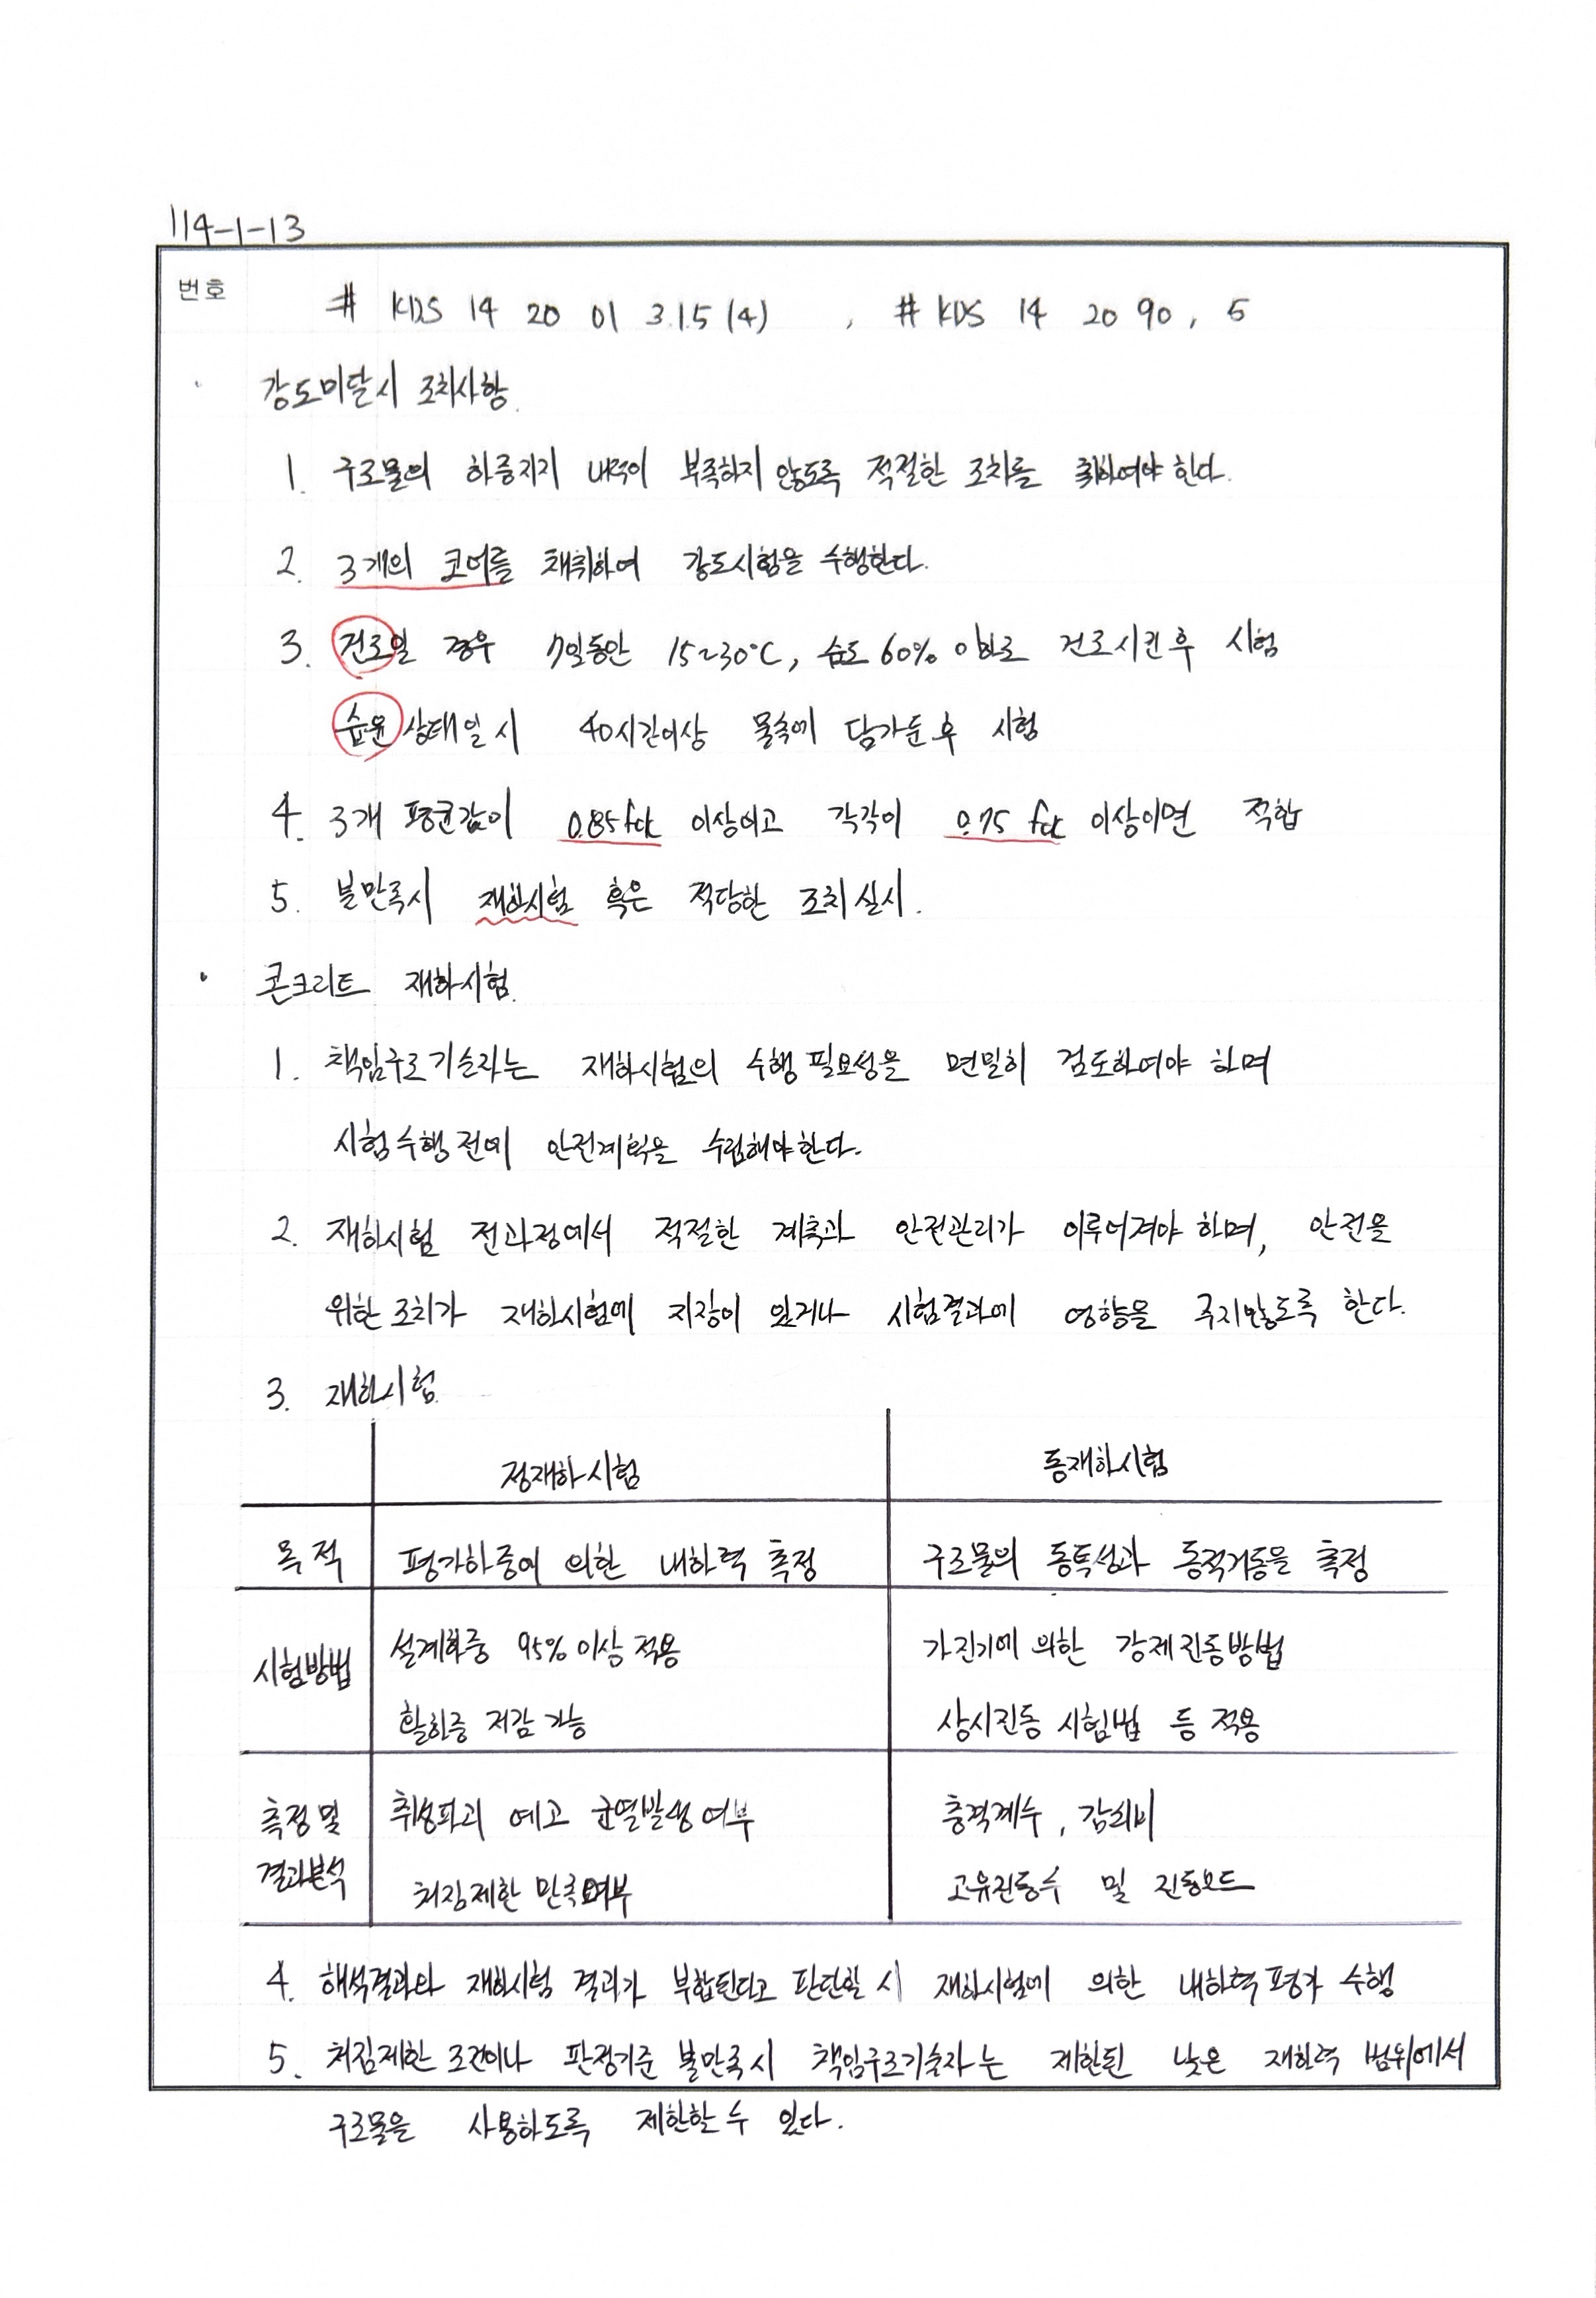 114-1-13
번호
# KDS 14 20 01 3.1.5 (4) , # KDS 14 20 90, 5
· 강도미달시 조치사항.
1. 구조물의 하중지지 내력이 부족하지 않도록 적절한 조치를 취하여야 한다.
2. 3개의 코어를 채취하여 강도시험을 수행한다.
3. 건조일 경우 7일동안 15~30°C, 습도 60% 이하로 건조시킨후 시험
습윤상태일시 40시간이상 물속에 담가둔후 시험
4. 3개 평균값이 0.85fck 이상이고 각각이 0.75 fck 이상이면 적합
5. 불만족시 재하시험 혹은 적당한 조치 실시.
· 콘크리트 재하시험.
1. 책임구조기술자는 재하시험의 수행 필요성을 면밀히 검토하여야 하며
시험수행 전에 안전계획을 수립해야한다.
2. 재하시험 전과정에서 적절한 계측과 안전관리가 이루어져야 하며, 안전을
위한 조치가 재하시험에 지장이 있거나 시험결과에 영향을 주지않도록 한다.
3. 재하시험.
정재하시험 동재하시험
목적 평가하중에 의한 내하력 측정 구조물의 동특성과 동적거동을 측정
시험방법 설계하중 95% 이상 적용 가진기에 의한 강제진동방법
활하중 저감 가능 상시진동 시험법 등 적용
측정 및 취성파괴 예고 균열발생 여부 충격계수, 감쇠비
결과분석 처짐제한 만족여부 고유진동수 및 진동모드
4. 해석결과와 재하시험 결과가 부합된다고 판단될 시 재하시험에 의한 내하력평가 수행
5. 처짐제한 조건이나 판정기준 불만족시 책임구조기술자는 제한된 낮은 재하력 범위에서
구조물을 사용하도록 제한할 수 있다.